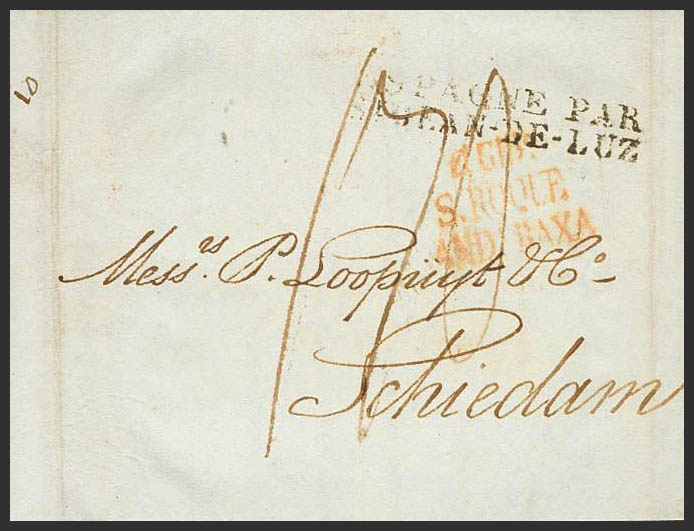 10
ESPAGNE PAR
ST JEAN-DE-LUZ
S. ROQUE
AND. BAXA
Messrs. P. Loopuyt & Co.
Schiedam